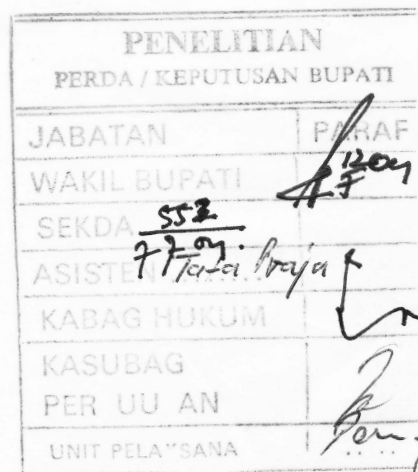 PENELITIAN
PERDA / KEPUTUSAN BUPATI
JABATAN PARAF
WAKIL BUPATI
SEKDA
ASISTEN Tata Praja
KABAG HUKUM
KASUBAG
PER UU AN
UNIT PELA"SANA